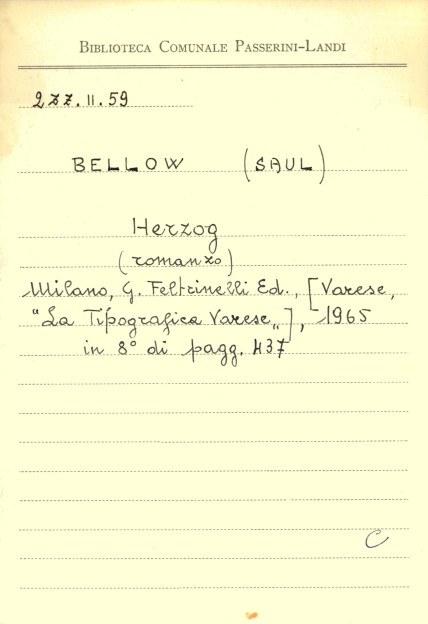 BIBLIOTECA COMUNALE PASSERINI-LANDI
2ZZ.II.59
BELLOW (SAUL)
Herzog
(romanzo)
Milano, G. Feltrinelli Ed., [Varese,
"La Tipografica Varese„], 1965
in 8° di pagg. 437
C